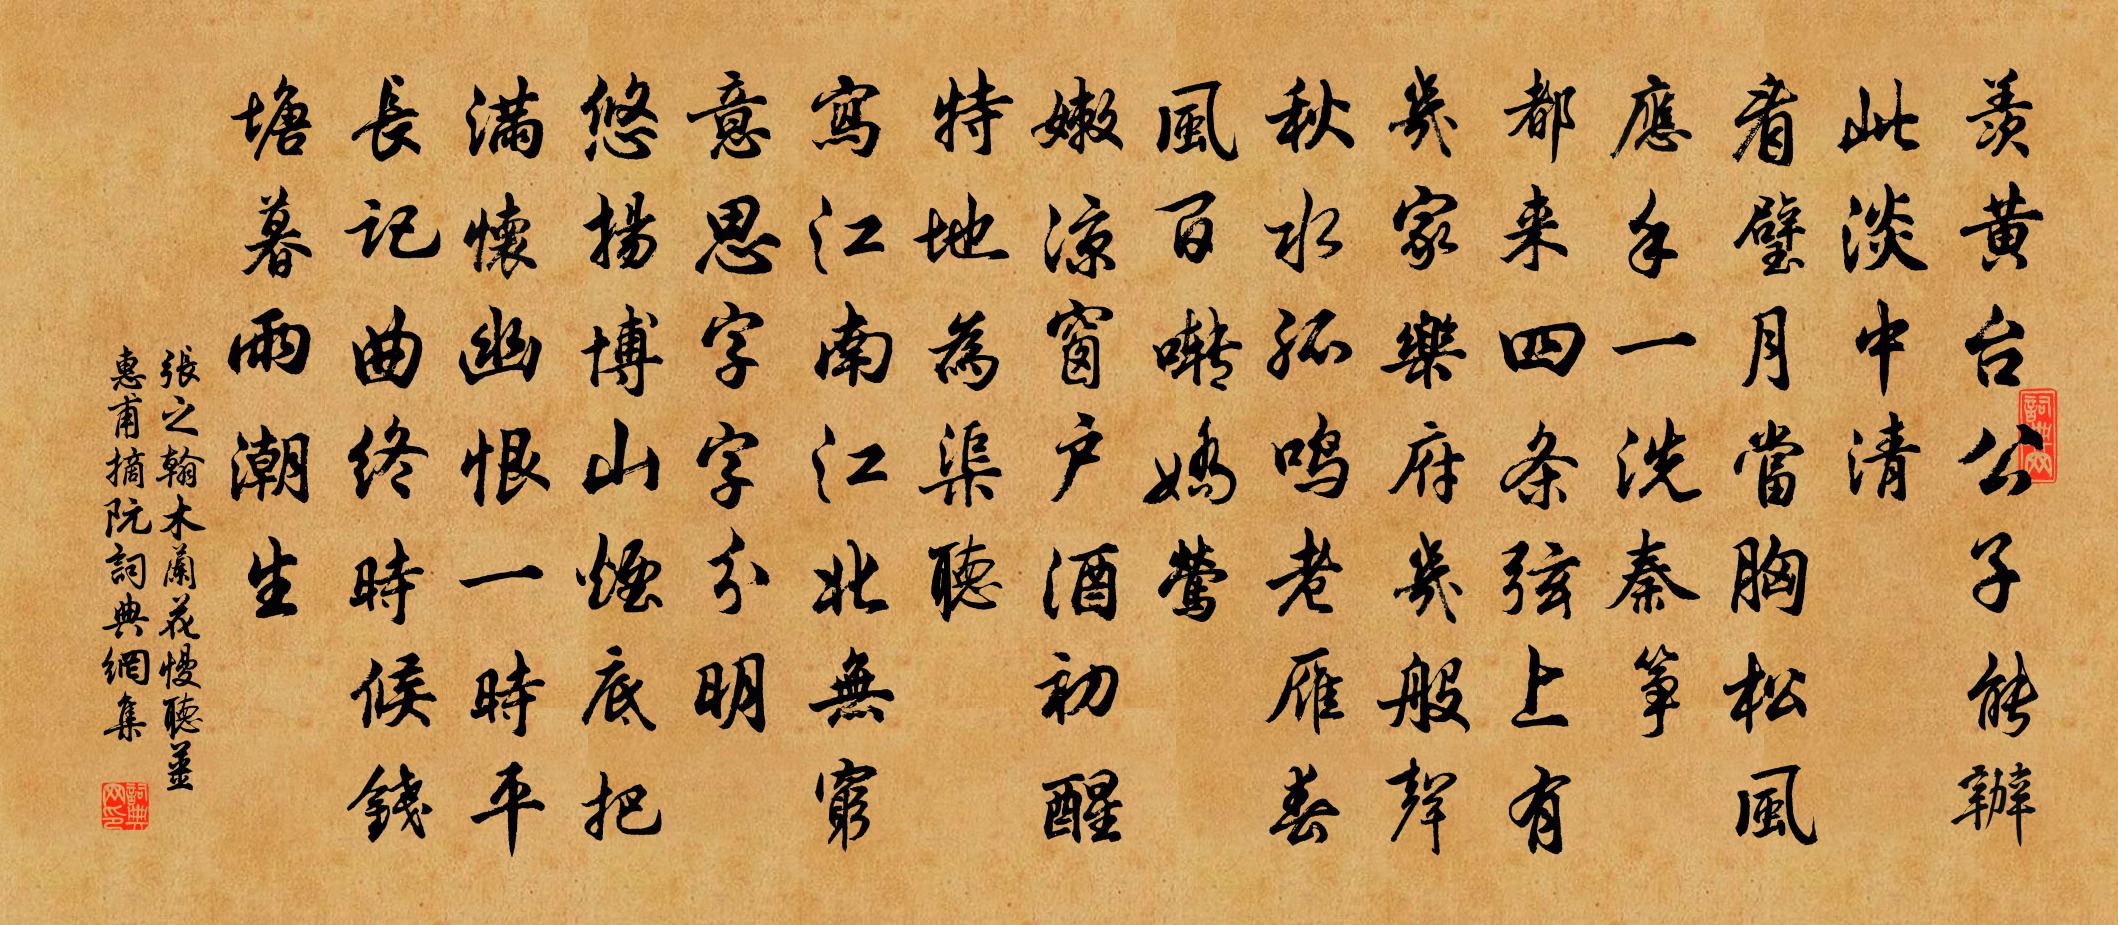 羨黄台公子能辦
此淡中清
看璧月當胸松風
應手一洗秦箏
都来四条弦上有
幾家樂府幾般聲
秋水孤鳴老雁春
風百囀嬌鶯
嫩涼窗户酒初醒
特地為渠聽
寫江南江北無窮
意思字字分明
悠揚博山煙底把
滿懷幽恨一時平
長記曲終時候錢
塘暮雨潮生
張之翰木蘭花慢聽姜
惠甫摘阮詞典網集
詞典网
詞典网印